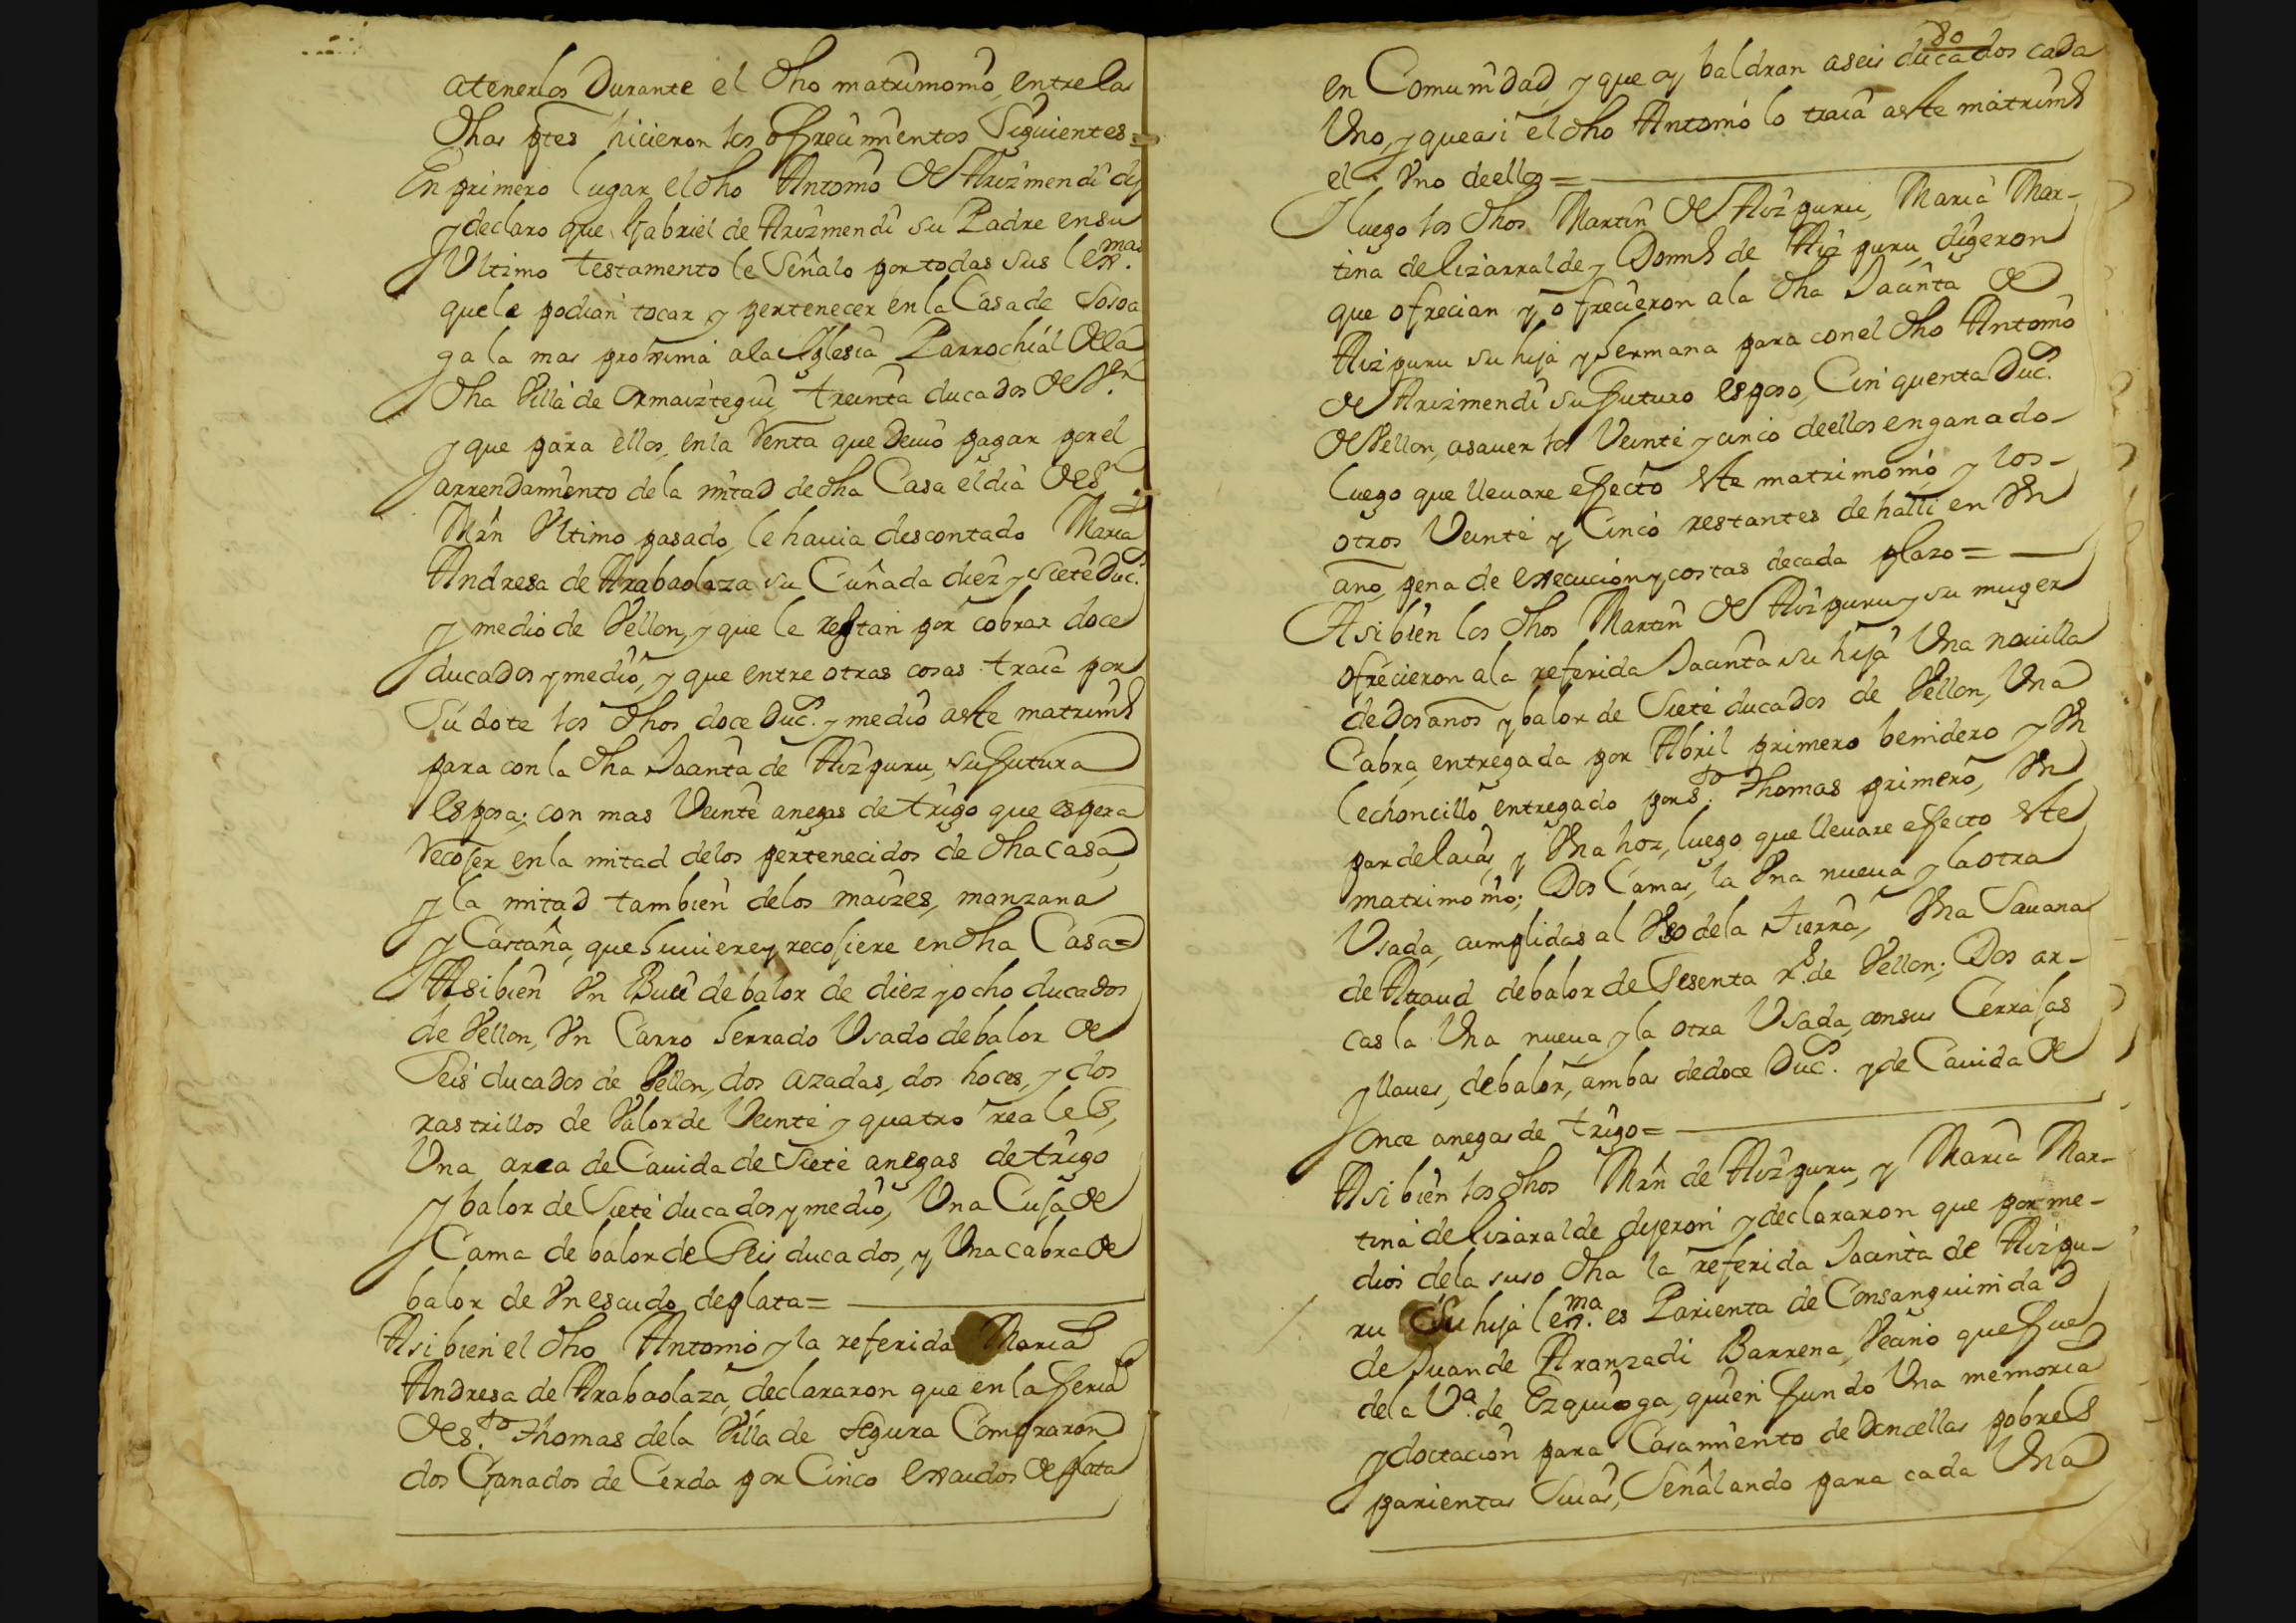 atenerlos Durante el dho matrimonio, entrelas
dhas ptes hicieron los ofrecimientos Siguientes=
En primero lugar, el dho Antonio de Arizmendi dijo
y declaro que Gabriel de Arizmendi su Padre en su
Ultimo testamento le Señalo por todas sus lexmas.
que le podian tocar y pertenecer en la Casa de Sosoa
ga la mas proxima ala Iglesia Parrochial dela
dha Villa de Ormaiztegui, treinta ducados de Vn.
y que para ellos, en la Renta que Deuio pagar por el
arrendamiento de la mitad de dha Casa el dia de Sn.
Mrn Ultimo pasado, le hauia descontado Maria
Andresa de Arabaolaza su Cuñada diez y siete Ducs.
y medio de Vellon, y que le restan por cobrar doce
ducados y medio, y que entre otras cosas traia por
Su dote los dhos doce Ducs. y medio aeste matrimo
para con la dha Jacinta de Aizpuru, su futura
esposa; con mas Veinte anegas de trigo que espera
recojer en la mitad delos pertenecidos de dha casa,
y la mitad tambien delos maizes, manzana
y Castaña, que huuiere y recojiere en dha Casa=
Asi bien Vn Buei de balor de diez y ocho ducados
de Vellon, Vn Carro herrado Usado de balor de
Seis ducados de Vellon, dos azadas, dos hoces, y dos
rastrillos de Valor de Veinte y quatro reales,
Una arca de Cauida de Siete anegas de trigo
y balor de Siete ducados y medio, Una Cuja de
Cama de balor de Seis ducados, y Una cabra de
balor de Vn escudo de plata=
Asi bien el dho Antonio y la referida Maria
Andresa de Arabaolaza, declararon que en la feria
de Sto. Thomas dela Villa de Segura Compraron
dos Ganados de Cerda por Cinco escudos de plata
en Comunidad, y que oy baldran a seis ducados cada
Uno, y que asi el dho Antonio lo traia aeste matrimo
el Vno de ellos=
Y luego los dhos Martin de Aizpuru, Maria Mar-
tina de lizarralde y Domo de Aizpuru, digeron
que ofrecian y ofrecieron ala dha Jacinta de
Aizpuru su hija y hermana para con el dho Antonio
de Arizmendi su futuro esposo, Cinquenta Ducs.
de Vellon, asauer los Veinte y cinco de ellos en ganado
luego que lleuare effecto este matrimonio, y los
otros Veinte y Cinco restantes de halli en Vn
año, pena de execucion y costas de cada plazo=
Asi bien los dhos Martin de Aizpuru y su muger
ofrecieron ala referida Jacinta su hija Una nouilla
de Dos años y balor de Siete ducados de Vellon, Una
Cabra, entregada por Abril primero benidero y Vn
lechoncillo entregado por Sto. Thomas primero, Vn
par de laias, y Vna hoz, luego que lleuare effecto este
matrimonio; Dos Camas, la Vna nueua y la otra
Usada, cumplidas al Vso dela tierra, Vna Sauana
de Ataud de balor de Sesenta rs. de Vellon; Dos ar-
cas la Una nueua, y la otra Usada, con sus Cerrajas
y llaues, de balor, ambas de doce Ducs. y de Cauida de
once anegas de trigo=
Asi bien los dhos Mrn de Aizpuru, y Maria Mar-
tina de lizaralde dijeron y declararon que por me-
dios dela suso dha la referida Jacinta de Aizpu-
ru Su hija lexma. es Parienta de Consanguinidad
de Juan de Aranzadi Barrena, Vecino que fue
dela Va. de Ezquioga, quien fundo Una memoria
y doctacion para Casamiento de Doncellas pobres
parientas Suias, Señalando para cada Una